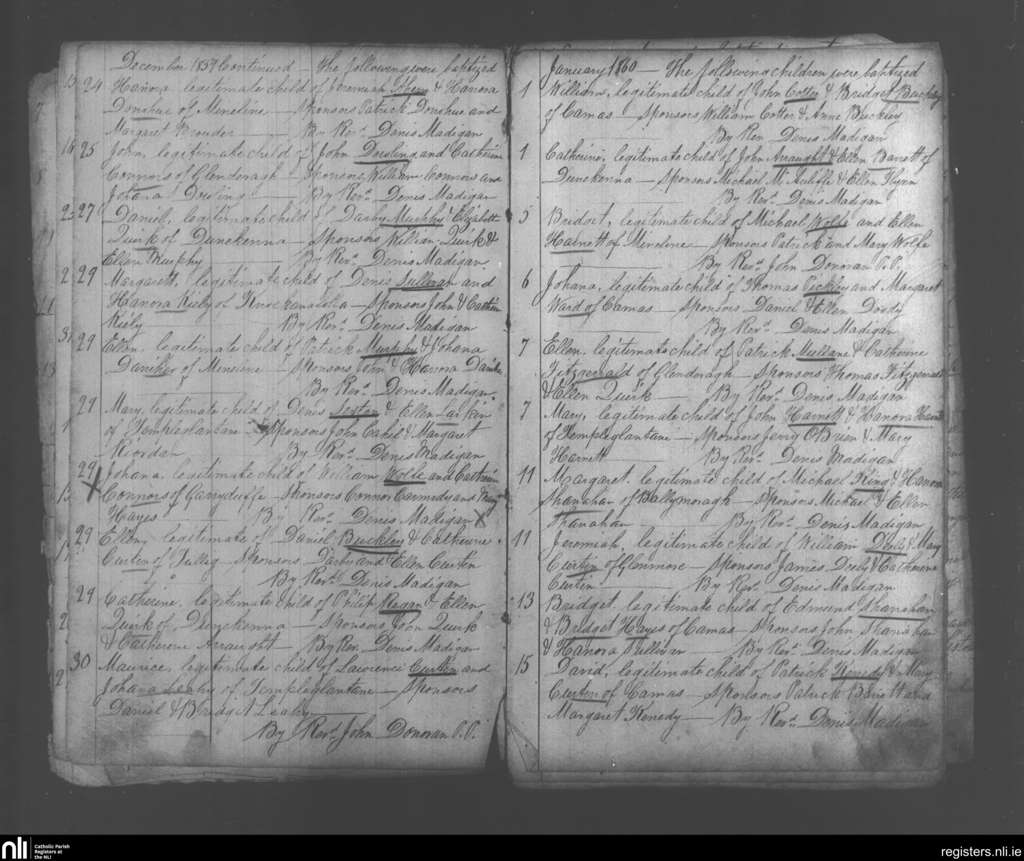 December 1859 Continued — The following were baptized
24 Hanora, legitimate child of Jeremiah Shea & Hanora
Donohue of Meneline — Sponsors Patrick Donohue and
Margaret — By Revd. Denis Madigan
25 John, legitimate child of John Dowling and Catherine
Connors of Glenderagh — Sponsors William Connors and
Johana Dowling By Revd. Denis Madigan
27 Daniel, legitimate child of Darby Murphy & Elizabeth
Quirk of Dunekenna — Sponsors Killian Quirk &
Ellen Murphy — By Revd. Denis Madigan
29 Margaret, legitimate child of Denis Sullivan and
Hanora Kiely of — Sponsors John & Catherine
Kiely By Revd. Denis Madigan
29 Ellen, legitimate child of Patrick Murphy & Johana
Daniker of Meneline — Sponsors John & Hanora
By Revd. Denis Madigan
29 Mary, legitimate child of Denis & Ellen Larkin
of Templeglantane — Sponsors John Cahil & Margaret
Riordan By Revd. Denis Madigan
29 Johana, legitimate child of William Wolfe and Catherine
Connors of — Sponsors Connor Carmody and
Hayes — By Revd. Denis Madigan X
29 Ellen, legitimate of Daniel Buckley & Catherine
Curtin of Tullig — Sponsors Darby and Ellen Curtin
By Revd. Denis Madigan
29 Catherine, legitimate child of Philip Regan & Ellen
Quirk of Dunekenna — Sponsors John Quirk
& Catherine Arraught — By Revd. Denis Madigan
30 Maurice, legitimate child of Laurence Curtin and
Johana Leahy of Templeglantane — Sponsors
Daniel & Bridget Leahy —
By Revd. John Donovan P.P.
January 1860 — The following children were baptized
1 William, legitimate child of John Cotter & Bridget Buckley
of Camas — Sponsors William Cotter & Anne Buckley
By Revd. Denis Madigan
1 Catherine, legitimate child of John Arraught & Ellen Barrett of
Dunekenna — Sponsors Michael McAuliffe & Ellen Flynn
By Revd. Denis Madigan
5 Bridget, legitimate child of Michael Wolfe and Ellen
Harnett of Meneline — Sponsors Patrick and Mary Wolfe
By Revd. John Donovan P.P.
6 Johana, legitimate child of Thomas and Margaret
Ward of Camas — Sponsors Daniel & Ellen
By Revd. Denis Madigan
7 Ellen, legitimate child of Patrick Mullane & Catherine
Fitzgerald of Glenderagh — Sponsors Thomas Fitzgerald
& Ellen Quirk — By Revd. Denis Madigan
7 Mary, legitimate child of John Harnett & Hanora
of Templeglantane — Sponsors Jerry O'Brien & Mary
Harnett — By Revd. Denis Madigan
11 Margaret, legitimate child of Michael King & Hanora
Shanahan of Ballymoragh — Sponsors Michael & Ellen
Shanahan — By Revd. Denis Madigan
11 Jeremiah, legitimate child of William Deely & Mary
Curtin of Glenmore — Sponsors James Deely & Catherine
Curtin — By Revd. Denis Madigan
13 Bridget, legitimate child of Edmund Shanahan
& Bridget Hayes of Camas — Sponsors John Shanahan
& Hanora Sullivan — By Revd. Denis Madigan
15 David, legitimate child of Patrick Kenedy & Mary
Curtin of Camas — Sponsors Patrick Barrett and
Margaret Kenedy — By Revd. Denis Madigan
nli
Catholic Parish
Registers at
the NLI
registers.nli.ie